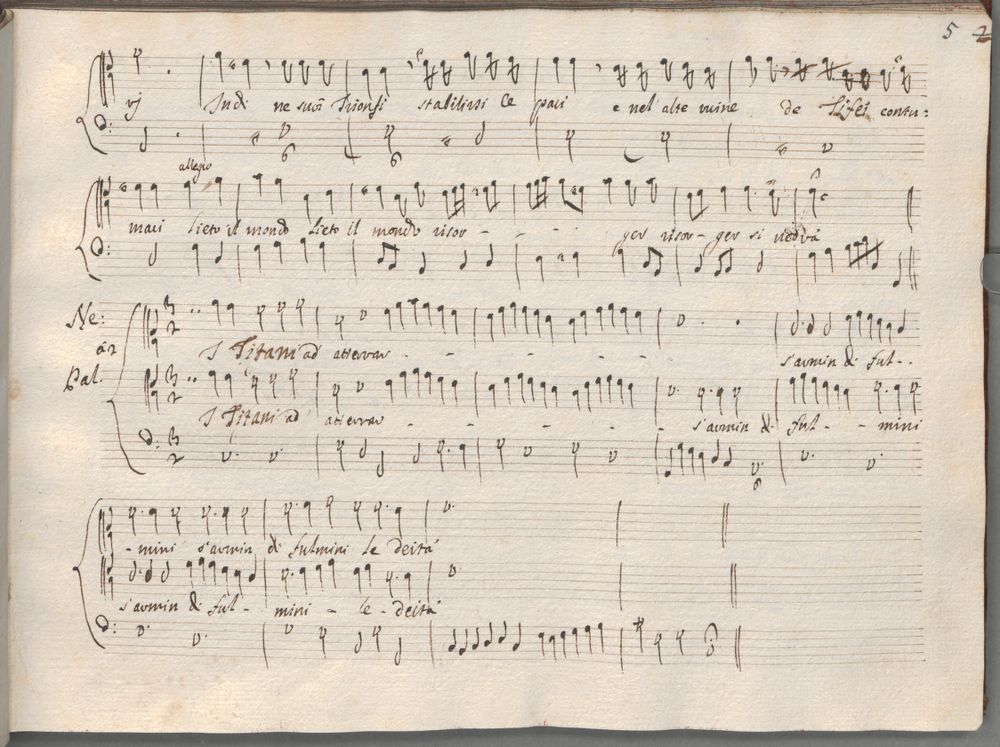 5 2
vj Indi ne suoi Trionfi stabilirsi le paci e nel alte ruine de Tifei contu:
6 6
allegro
maci lieto il mondo lieto il mondo risor - - - - ger risor - ger si vedrà
Ne:
à 2
Pal.
3 2
I Titani ad atterrar - - - - - - s'armin di ful - -
3 2
I Titani ad atterrar - - - - - - s'armin di ful - - mini
3 2
6
- mini s'armin di fulmini le deità
s'armin di ful - mini - le - deità